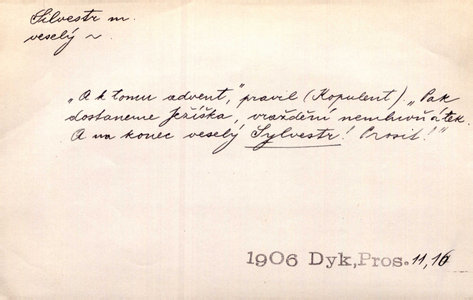 Silvestr m.
veselý ~.
„A k tomu advent,“ pravil (Kopulent). „Pak
dostaneme Ježíška, vraždění nemluvňátek.
A na konec veselý Sylvestr! Prosit!“
1906 Dyk, Pros. 11, 16